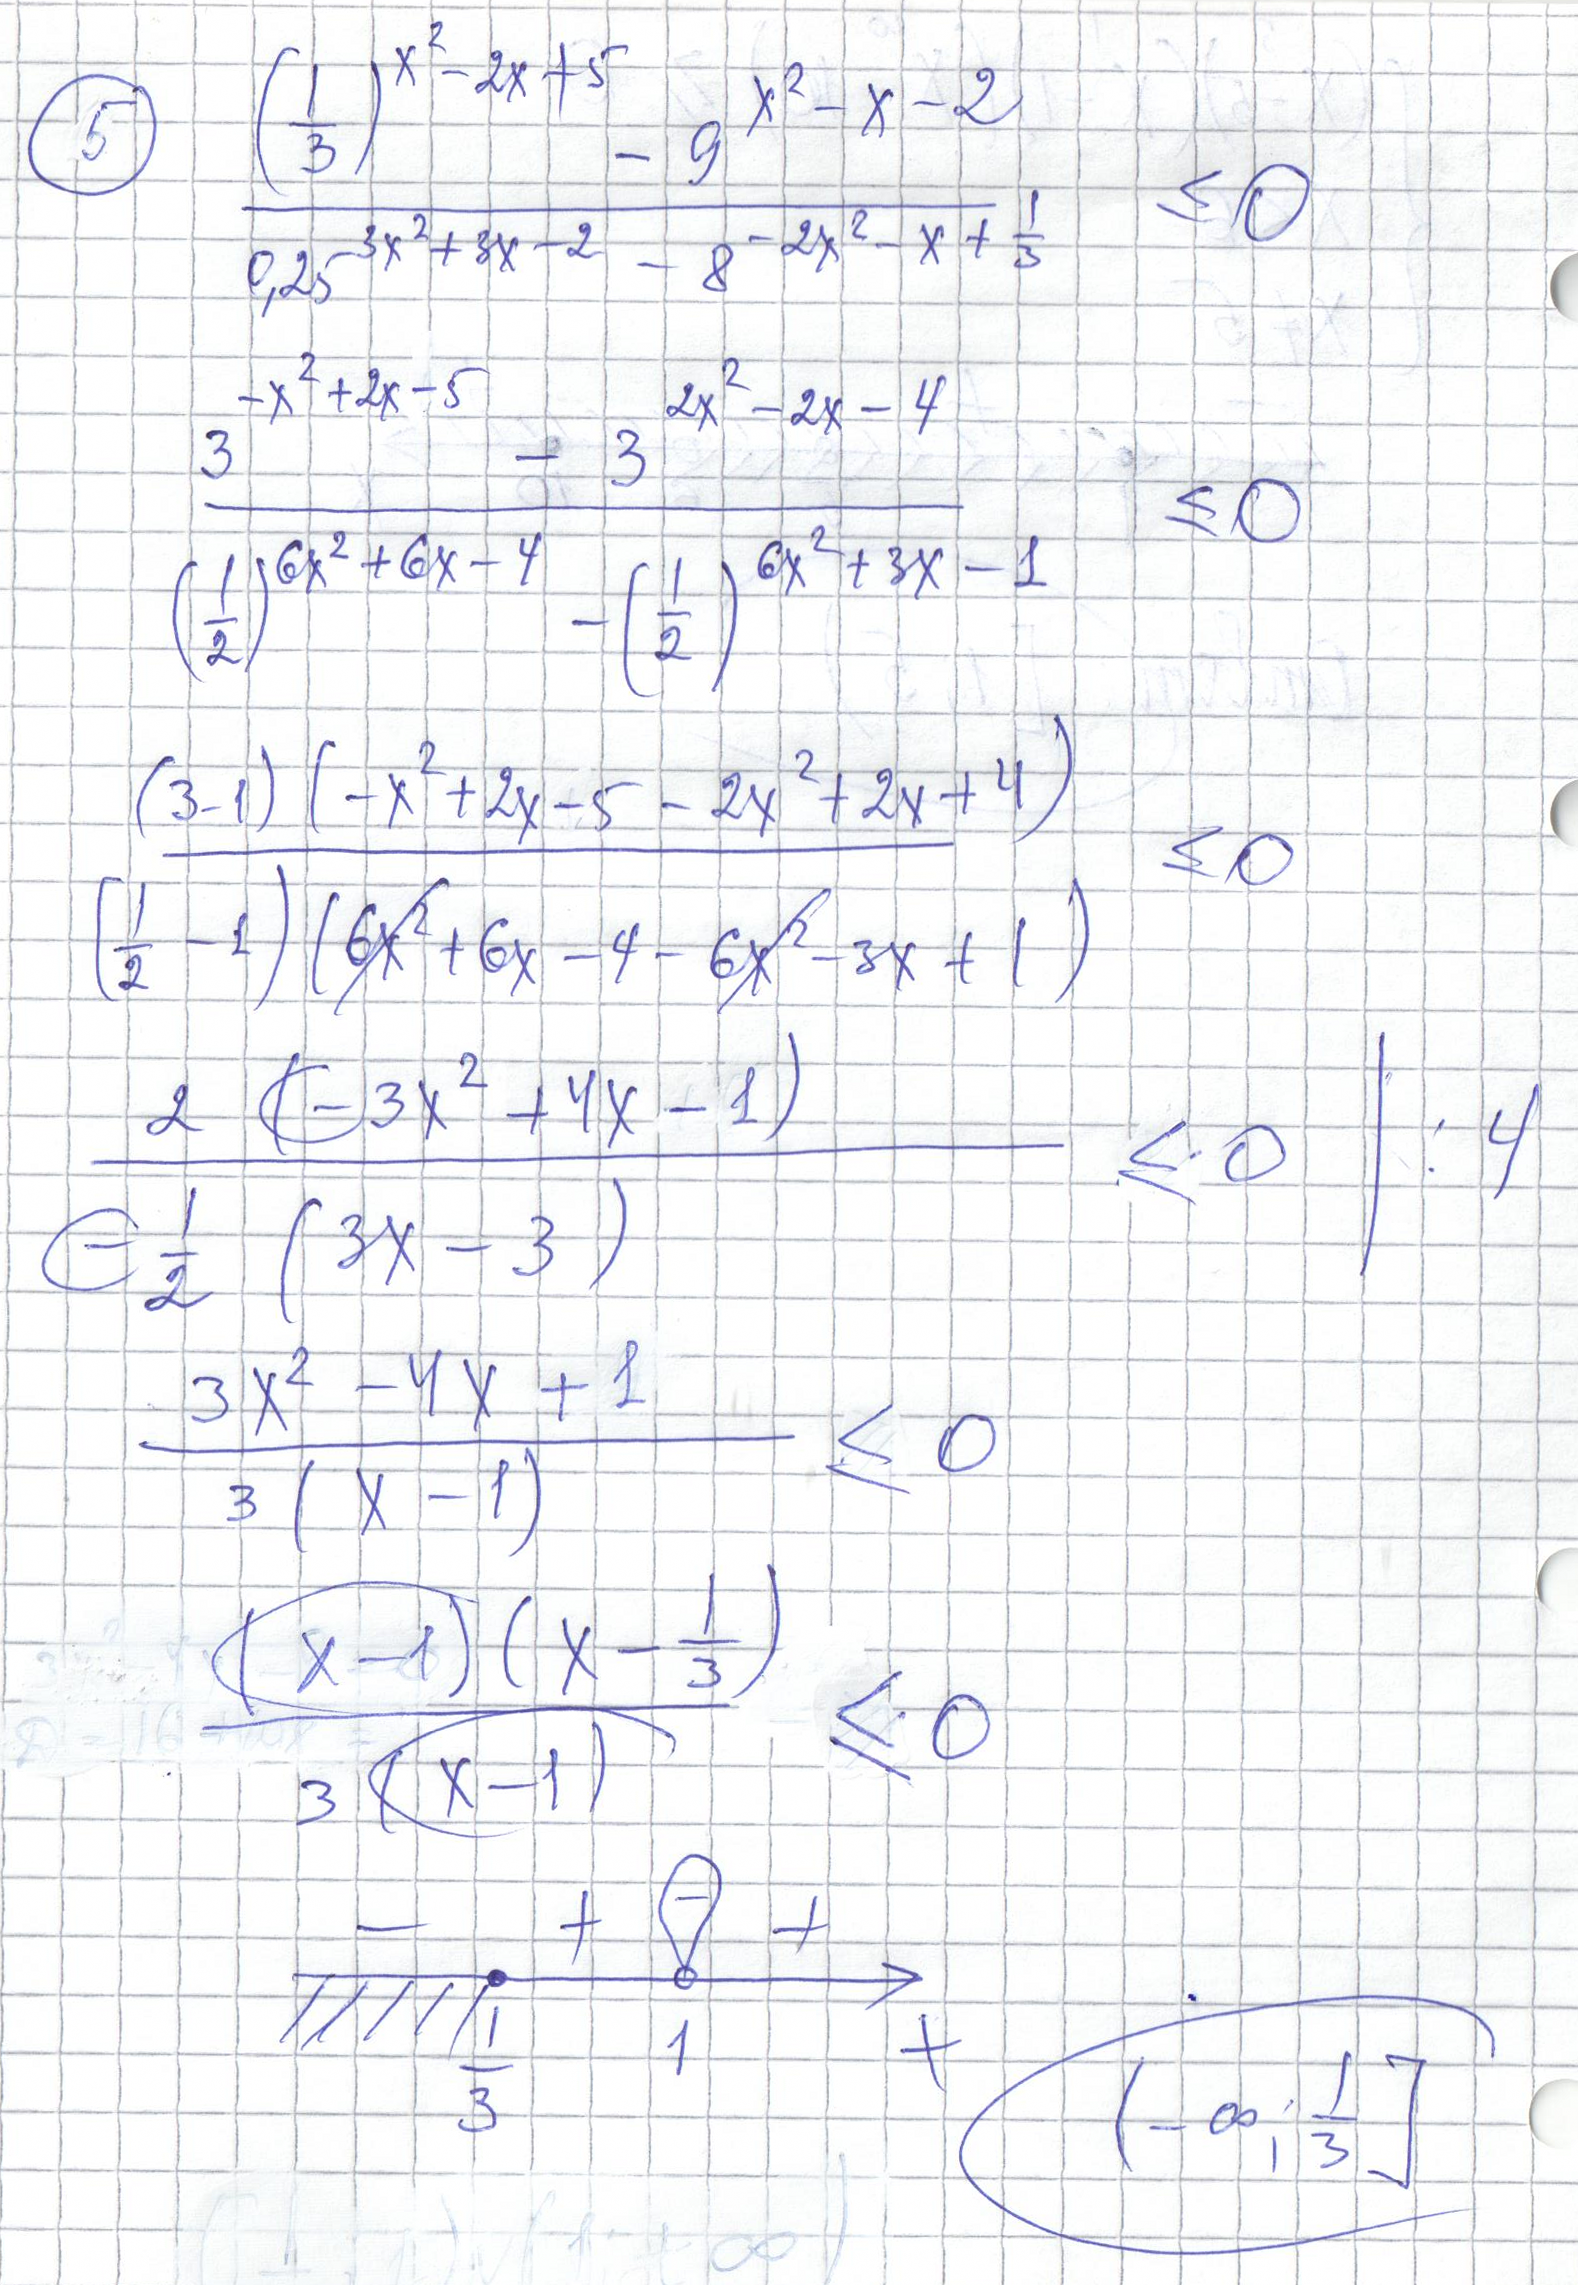 5
(1/3)^(x²-2x+5) - 9^(x²-x-2)
≤ 0
0,25^(3x²+3x-2) - 8^(-2x²-x+1/3)
3^(-x²+2x-5) - 3^(2x²-2x-4)
≤ 0
(1/2)^(6x²+6x-4) - (1/2)^(6x²+3x-1)
(3-1)(-x²+2x-5-2x²+2x+4)
≤ 0
(1/2-1)(6x²+6x-4-6x²-3x+1)
2(-3x²+4x-1)
≤ 0 | :4
-1/2(3x-3)
3x²-4x+1
≤ 0
3(x-1)
(x-1)(x-1/3)
≤ 0
3(x-1)
- + - +
1/3 1 +
(-∞; 1/3]